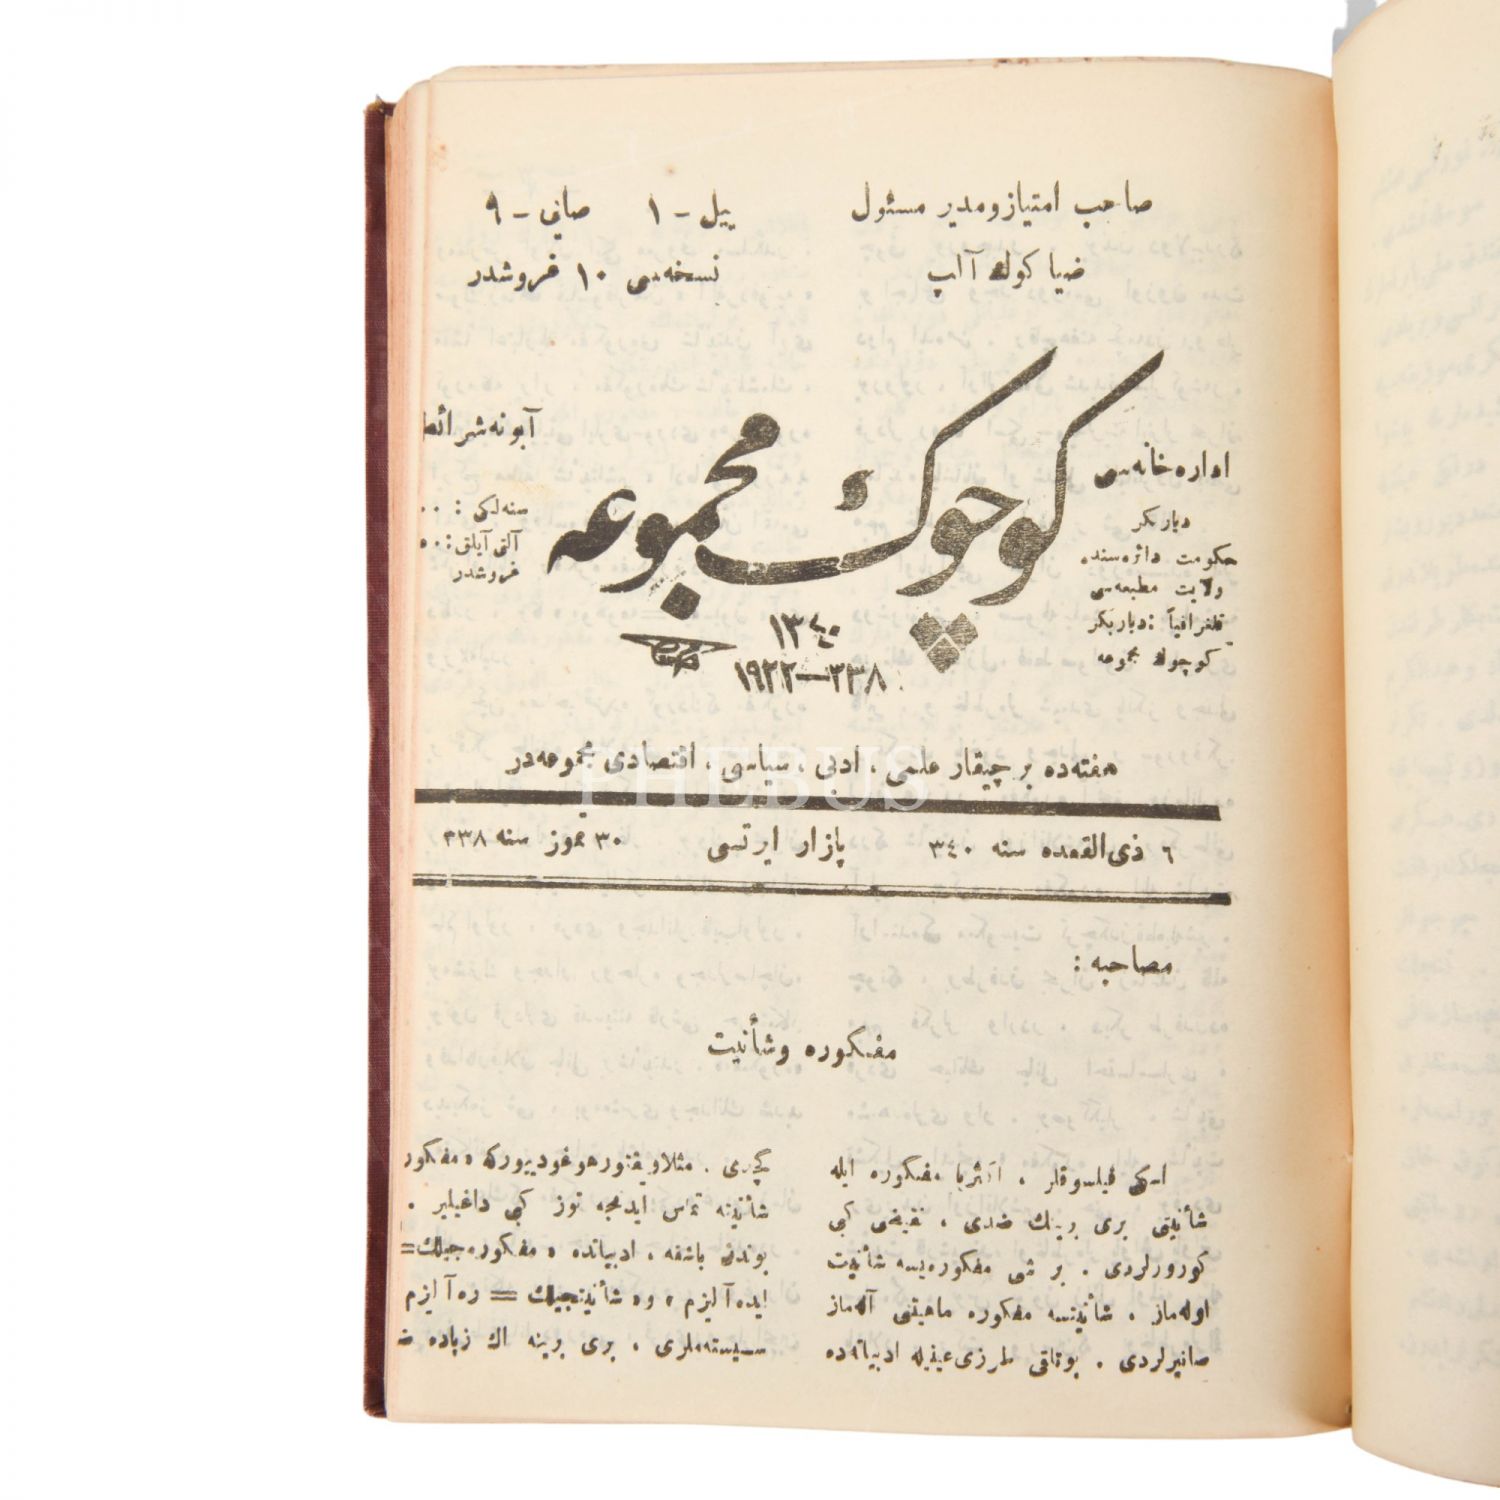 صاحب امتیاز و مدیر مسئول
ضیا كوك آلپ
ییل - ۱ صایی - ۹
نسخه‌سی ۱۰ غروشدر
كوچوك مجموعه
اداره خانه‌سی
دیاربكر
حكومت دائره‌سنده
ولایت مطبعه‌سی
تلغرافیاً : دیاربكر
كوچوك مجموعه
آبونه شرائط
سنه‌لكی :
آلتی آیلق :
غروشدر
۱۳٤۰
۳۳۸—۱۹۲۲
هفته‌ده بر چیقار علمی ، ادبی ، سیاسی ، اقتصادی مجموعه‌در
PHEBUS
٦ ذی‌القعده سنه ۳٤۰ پازار ایرتسی ۳۰ تموز سنه ۳۳۸
مصاحبه :
مفكوره و شأنیت
اسكی فیلسوفلر ، اكثریا مفكوره ایله
شأنیتی بری برینك ضدی ، نقیضی كبی
كورورلردی . بر شی مفكوره‌یسه شأنیت
اوله‌ماز ، شأنیتسه مفكوره ماهیتنی آله‌ماز
صانیرلردی . بو تلقی طرزی عینیله ادبیاته‌ده
كچدی . مثلا ویقتور هوغو دییوركه « مفكوره
شأنیته تماس ایدنجه توز كبی داغیلیر .
بوندن باشقه ، ادبیاتده « مفكوره‌جیلك =
ایده‌آلیزم » و « شأنیتجیلك = ره‌آلیزم
سیسته‌ملری ، بری برینه اك زیاده ض